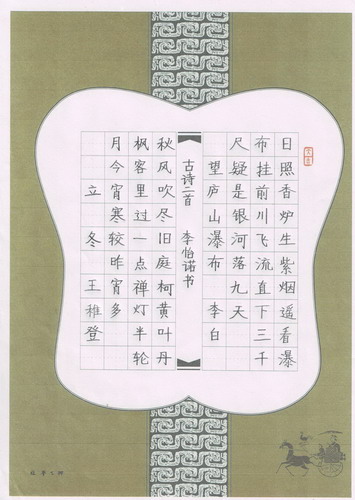 日照香炉生紫烟遥看瀑
布挂前川飞流直下三千
尺疑是银河落九天
望庐山瀑布 李白
古诗二首 李怡诺书
秋风吹尽旧庭柯黄叶丹
枫客里过一点禅灯半轮
月今宵寒较昨宵多
立冬 王稚登